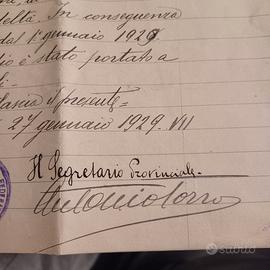 deltà. In conseguenza
dal 1° gennaio 1926
dio è stato portato a
di-
lascia il presente=
27 gennaio 1929. VII
Il Segretario Provinciale.
Antonio
subito